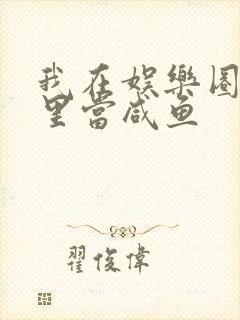 我在娱樂圈
里當咸鱼
翟俊偉